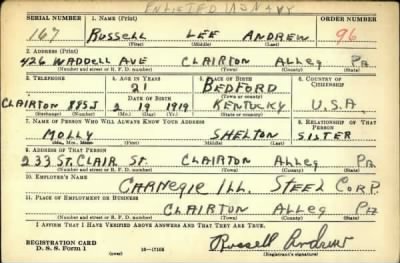 ENLISTED IN NAVY
SERIAL NUMBER 1. Name (Print) ORDER NUMBER
167 Russell LEE ANDREW 96
(First) (Middle) (Last)
2. Address (Print)
426 WADDELL AVE CLAIRTON ALLEG PA
(Number and street or R. F. D. number) (Town) (County) (State)
3. Telephone 4. Age in Years 5. Place of Birth 6. Country of Citizenship
21 BEDFORD
Date of Birth (Town or county)
CLAIRTON 885J 2 19 1919 KENTUCKY U.S.A
(Exchange) (Number) (Mo.) (Day) (Yr.) (State or country)
7. Name of Person Who Will Always Know Your Address 8. Relationship of That Person
MOLLY SHELTON SISTER
(Mr., Mrs., Miss) (First) (Middle) (Last)
9. Address of That Person
233 ST. CLAIR ST. CLAIRTON ALLEG PA
(Number and street or R. F. D. number) (Town) (County) (State)
10. Employer's Name
CARNEGIE ILL. STEEL CORP.
11. Place of Employment or Business
CLAIRTON ALLEG PA
(Number and street or R. F. D. number) (Town) (County) (State)
I Affirm That I Have Verified Above Answers and That They Are True.
REGISTRATION CARD
D. S. S. Form 1 (over) 16—17105 Russell Andrew
(Registrant's signature)